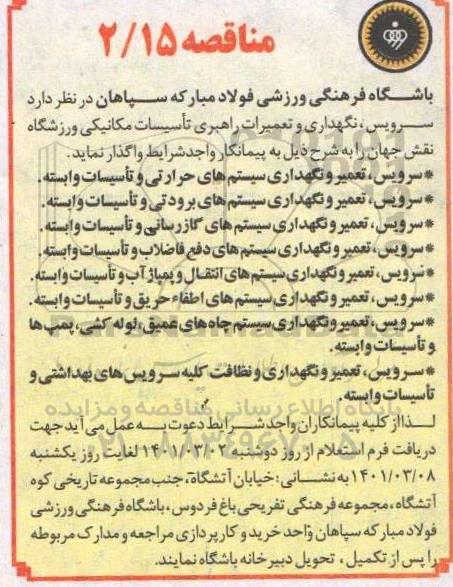 مناقصه ۲/۱۵
باشگاه فرهنگی ورزشی فولاد مبارکه سپاهان در نظر دارد
سرویس، نگهداری و تعمیرات، راهبری تأسیسات مکانیکی ورزشگاه
نقش جهان را به شرح ذیل به پیمانکار واجدشرایط واگذار نماید.
*سرویس، تعمیر و نگهداری سیستم های حرارتی و تأسیسات وابسته.
*سرویس، تعمیر و نگهداری سیستم های برودتی و تأسیسات وابسته.
*سرویس، تعمیر و نگهداری سیستم های گازرسانی و تأسیسات وابسته.
*سرویس، تعمیر و نگهداری سیستم های دفع فاضلاب و تأسیسات وابسته.
*سرویس، تعمیر و نگهداری سیستم های انتقال و پمپاژ آب و تأسیسات وابسته.
*سرویس، تعمیر و نگهداری سیستم های اطفاء حریق و تأسیسات وابسته.
*سرویس، تعمیر و نگهداری سیستم چاه های عمیق، لوله کشی، پمپ ها
و تأسیسات وابسته.
*سرویس، تعمیر و نگهداری و نظافت کلیه سرویس های بهداشتی و
تأسیسات وابسته.
لذا از کلیه پیمانکاران واجد شرایط دعوت به عمل می آید جهت
دریافت فرم استعلام از روز دوشنبه ۱۴۰۱/۰۳/۰۲ لغایت روز یکشنبه
۱۴۰۱/۰۳/۰۸ به نشانی: خیابان آتشگاه، جنب مجموعه تاریخی کوه
آتشگاه، مجموعه فرهنگی تفریحی باغ فردوس، باشگاه فرهنگی ورزشی
فولاد مبارکه سپاهان واحد خرید و کارپردازی مراجعه و مدارک مربوطه
را پس از تکمیل، تحویل دبیرخانه باشگاه نمایند.
پایگاه اطلاع رسانی مناقصه و مزایده
۰۲۱-۸۸۳۴۹۶۷۰-۵